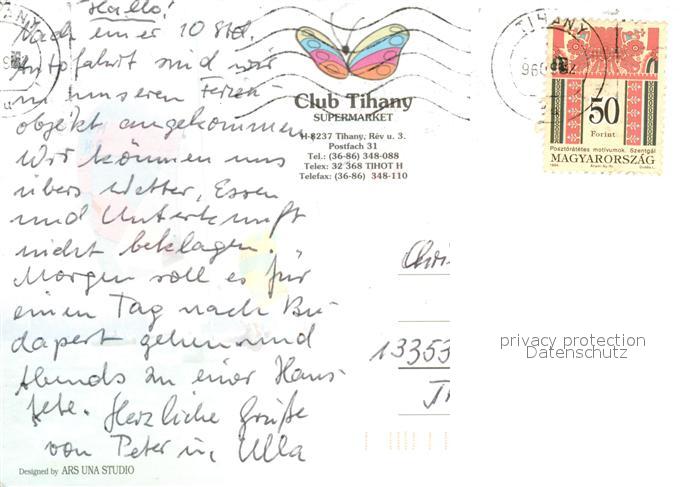 Hallo!
Nach einer 10 Std.
Autofahrt sind wir
in unserem Ferien-
objekt angekommen.
Wir können uns
übers Wetter, Essen
und Unterkunft
nicht beklagen.
Morgen soll es für
einen Tag nach Bu-
dapest gehen und
Abends zu einer Haus-
fete. Herzliche Grüße
von Peter u. Ulla
Designed by ARS UNA STUDIO
Club Tihany
SUPERMARKET
H-8237 Tihany, Rév u. 3.
Postfach 31
Tel.: (36-86) 348-088
Telex: 32 368 TIHOT H
Telefax: (36-86) 348-110
TIHANY
50
Forint
Posztórátétes motívumok. Szentgál
MAGYARORSZÁG
1994
13353
privacy protection
Datenschutz